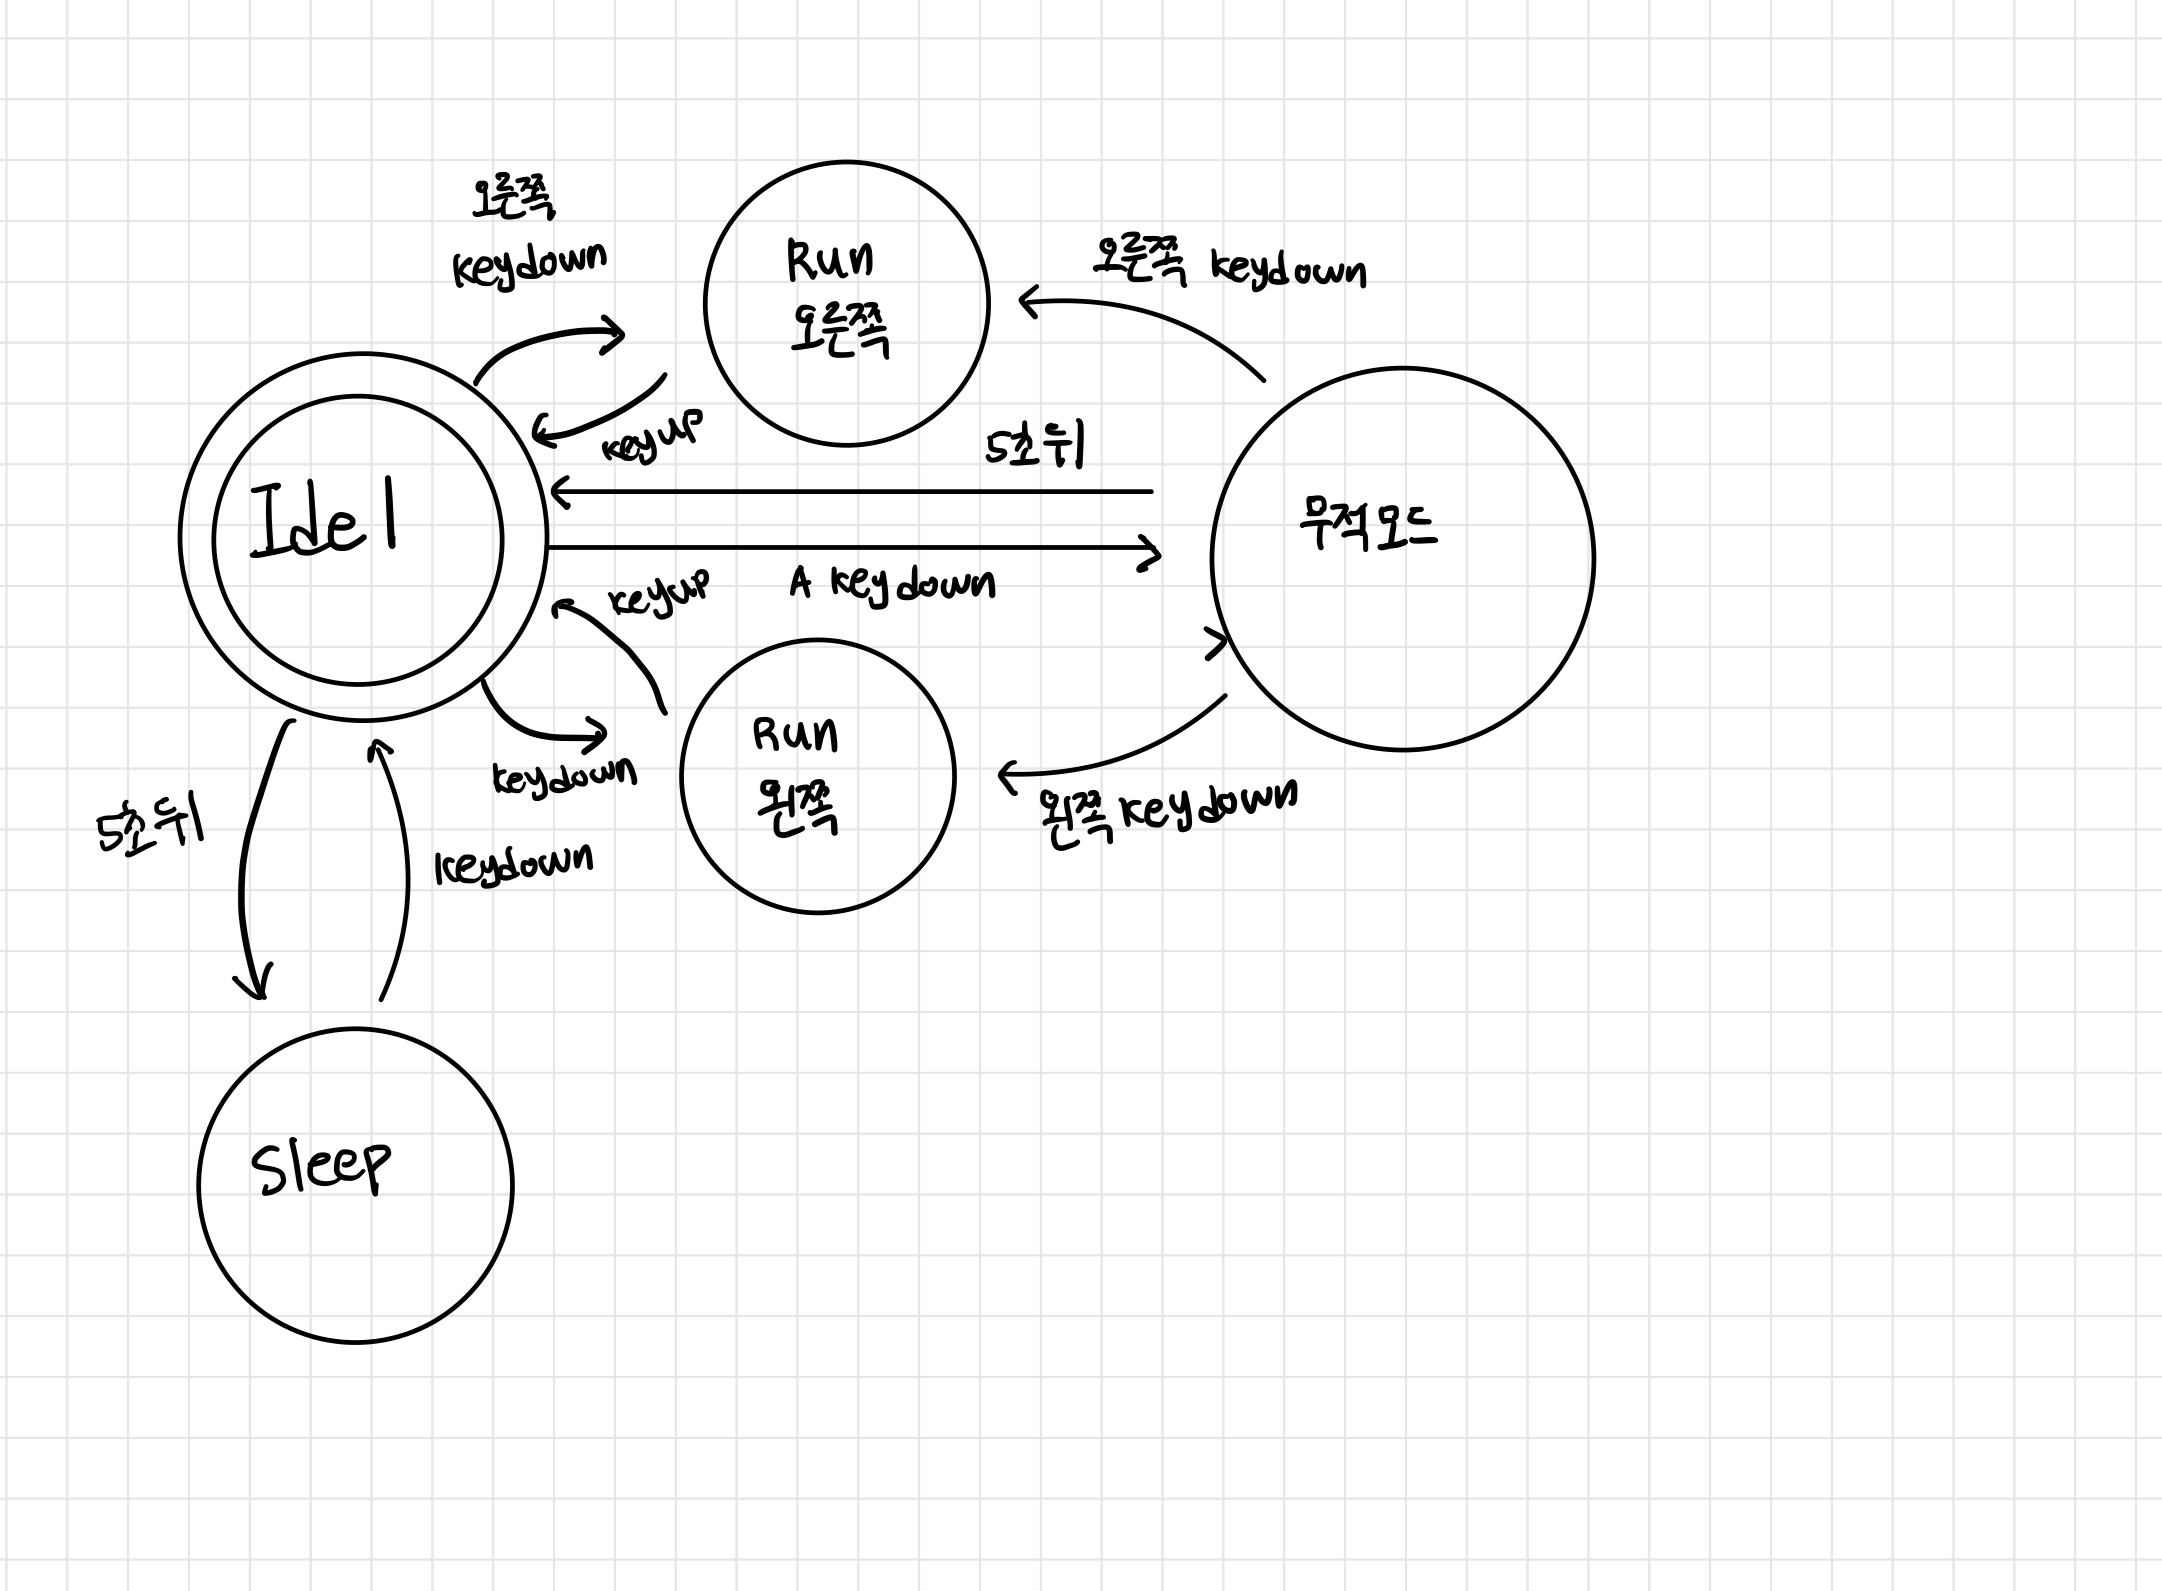 오른쪽
keydown
Run
오른쪽
오른쪽 keydown
keyup
5초뒤
Idel
무적모드
keyup
A keydown
Run
왼쪽
keydown
왼쪽 keydown
5초뒤
keydown
Sleep